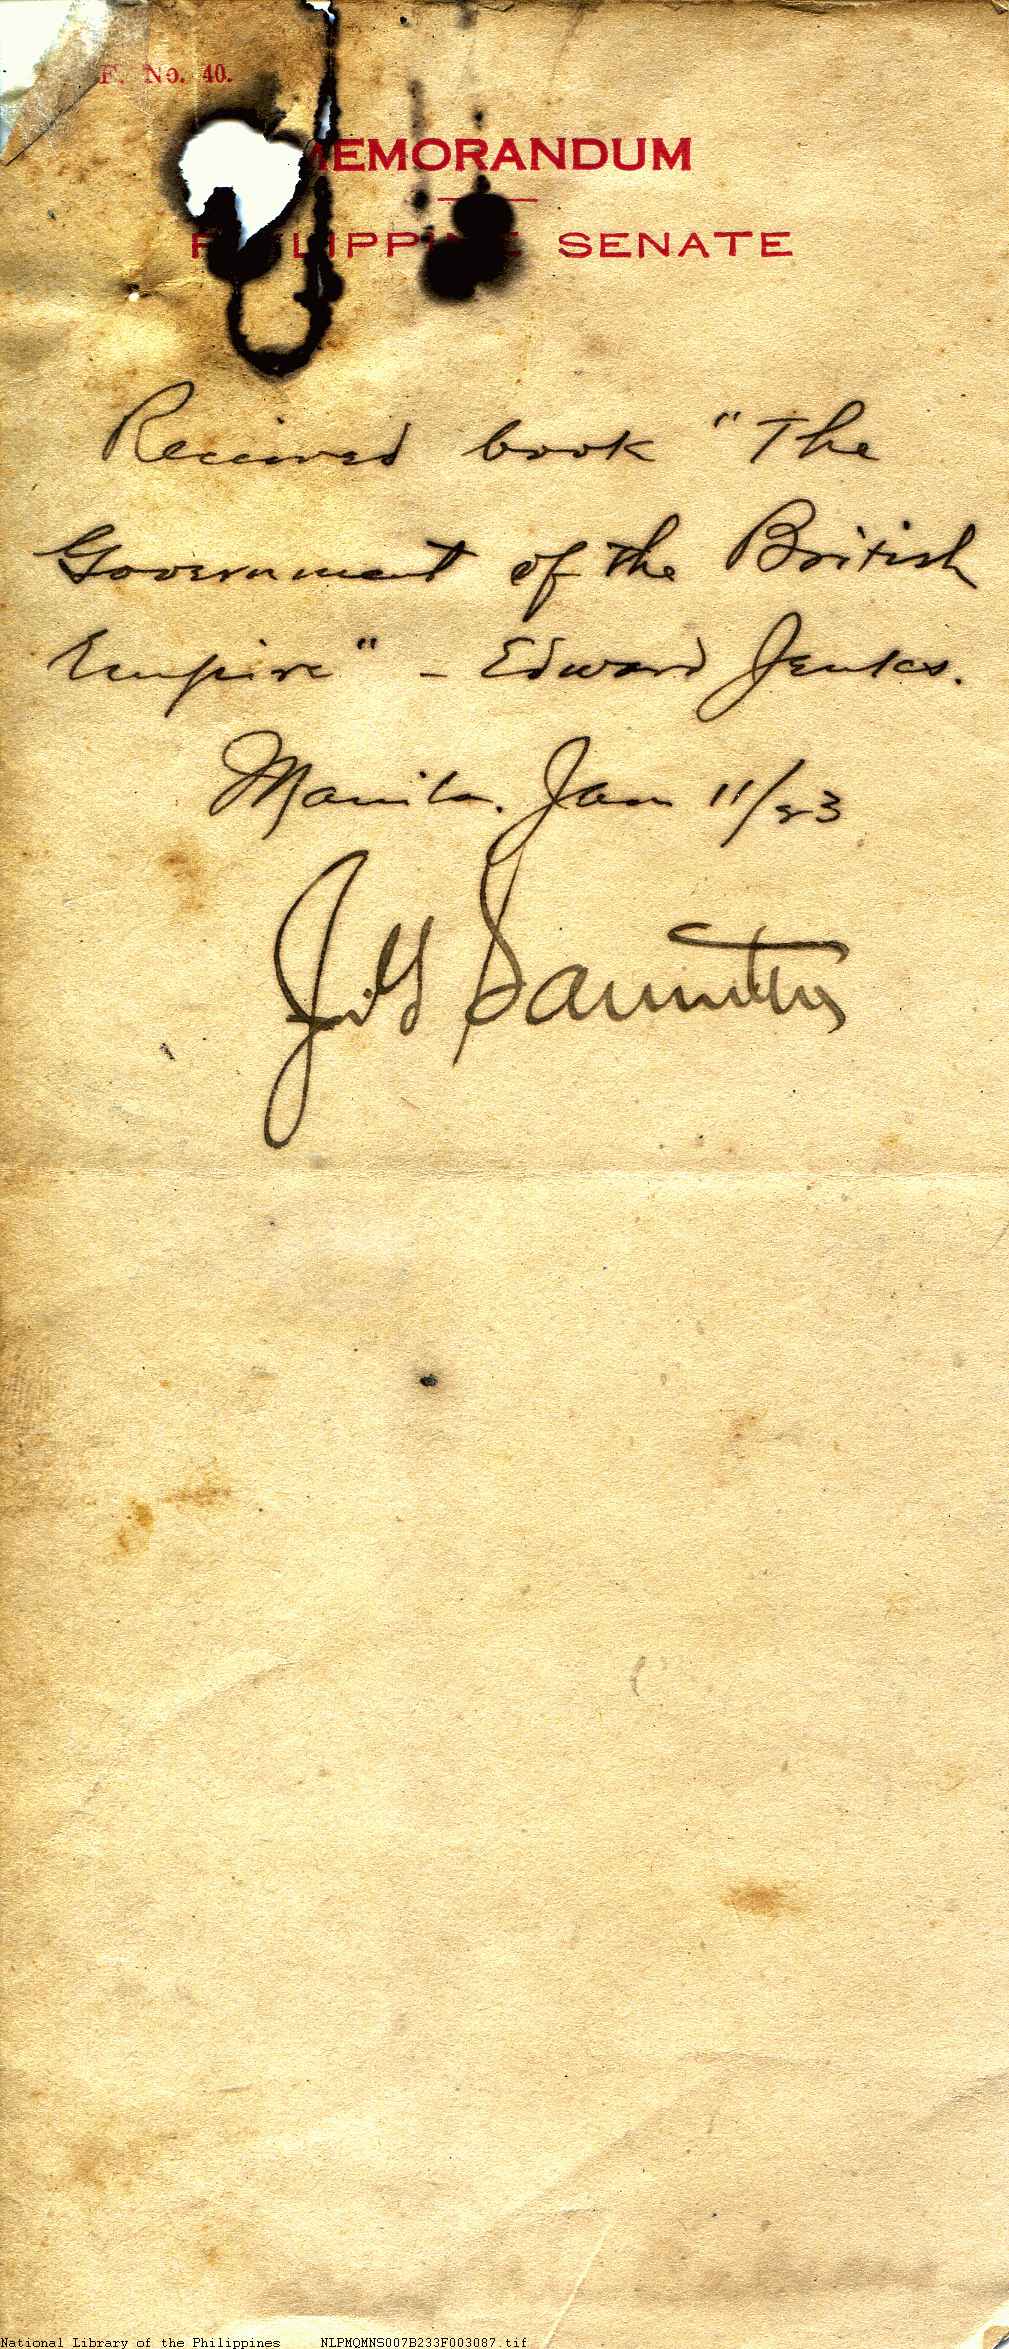 F. No. 40.
MEMORANDUM
PHILIPPINE SENATE
Received book "The
Government of the British
Empire" - Edward Jenks.
Manila. Jan 11/23
J.
National Library of the Philippines NLPMQMNS007B233F003087.tif